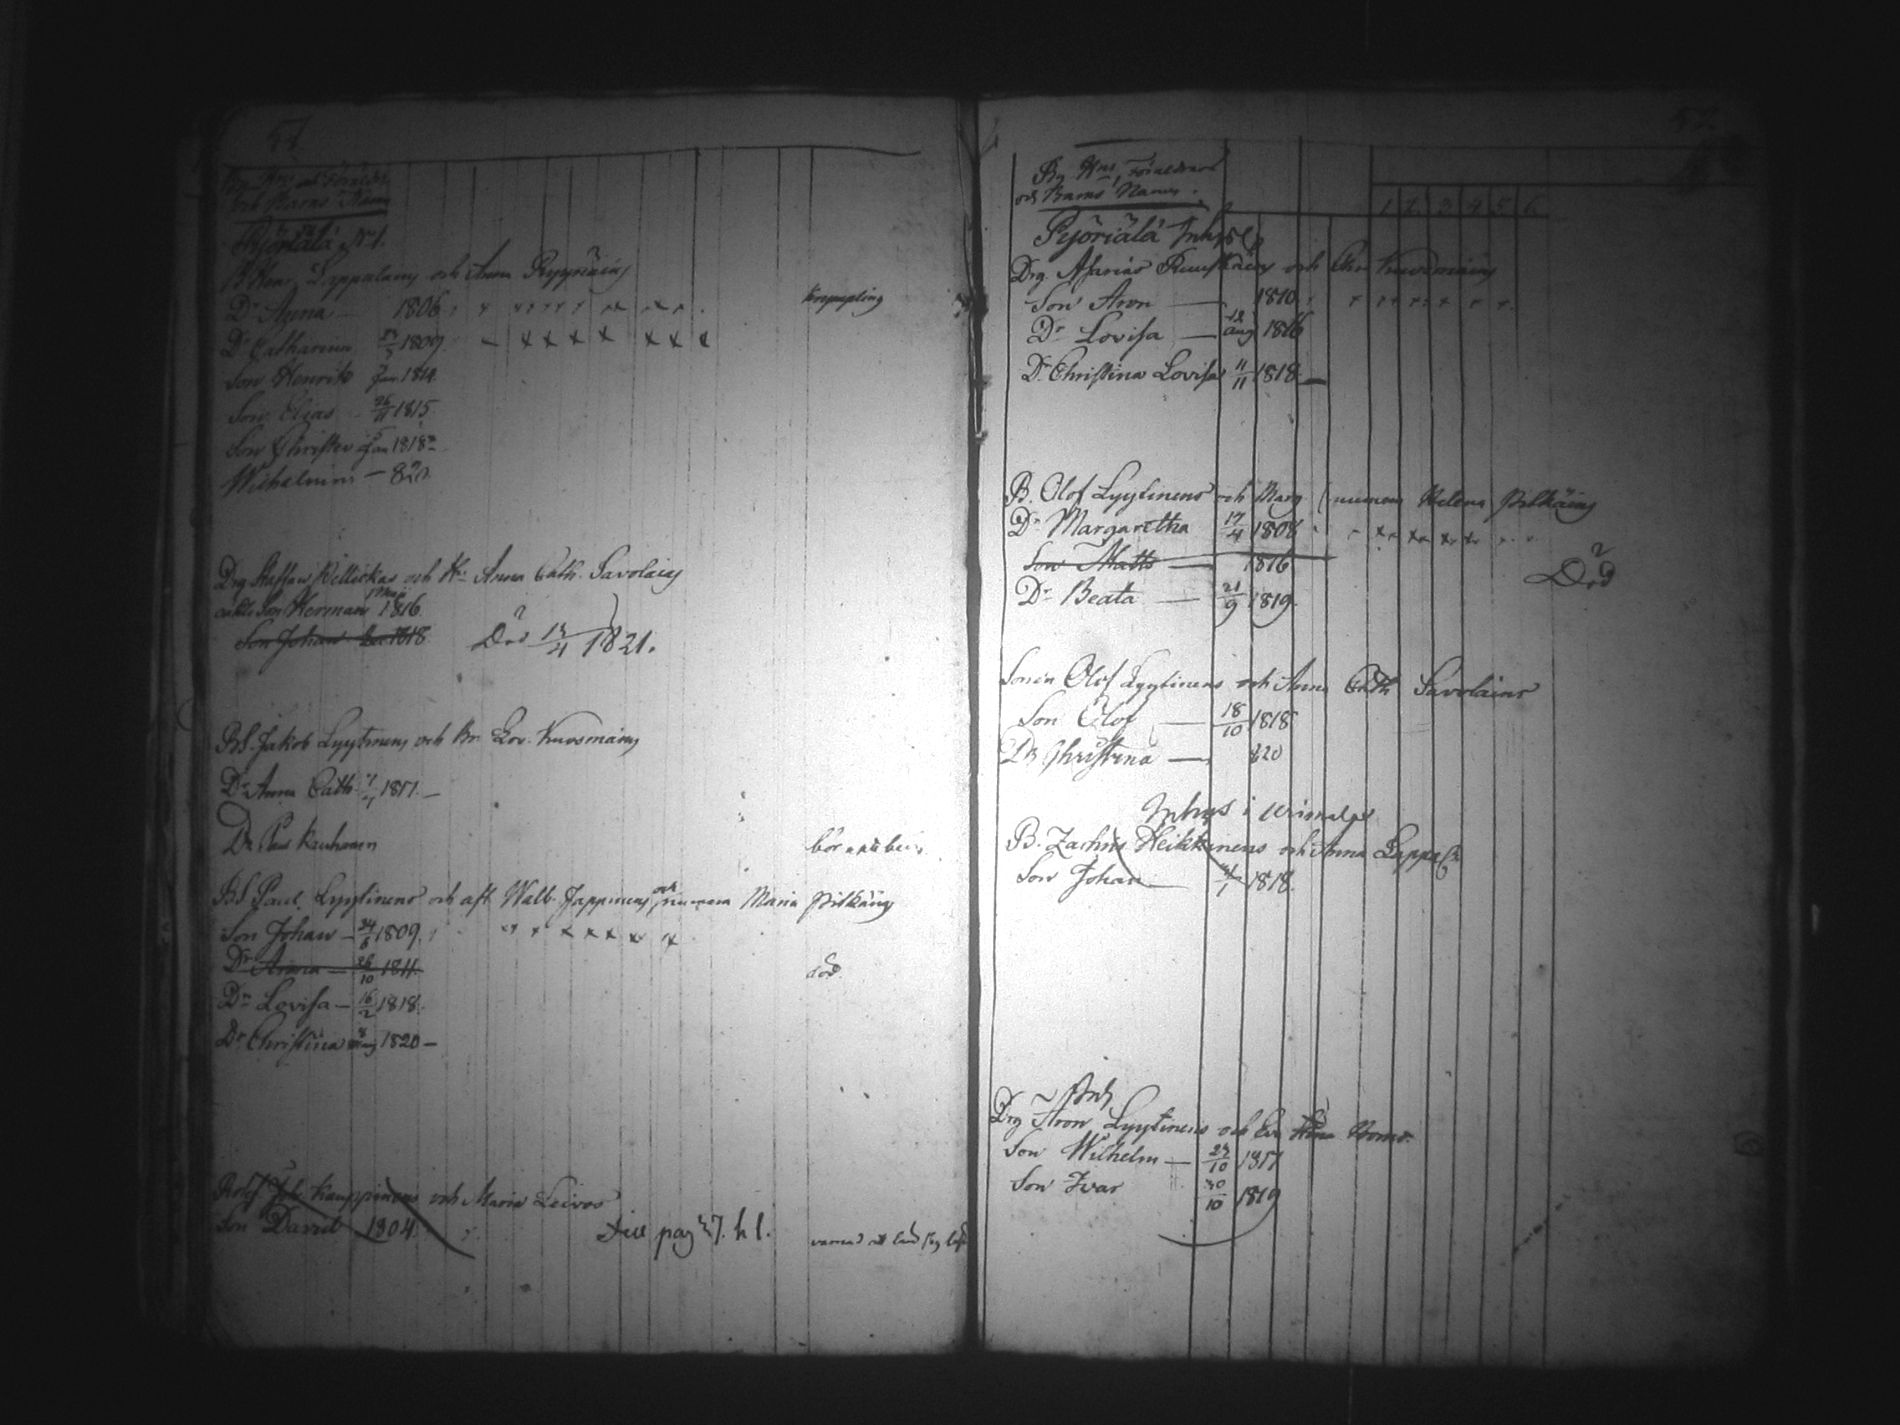 57
By, Hns och Föräldr.
och Barns Namn
Pyöriälä N 1.
B. Henr. Lappalains och Anna Ryynäins
Dr Anna — 1806
Dr Catharina 1809
Son Henrik Jan 1814.
Son Elias 26/11 1815
Son Christer Jan 1818
Wilhelmina — 820
Drg Staffan Killickas och Hu Anna Cath. Savolains
Son Herman 1816
Son Johan 1818 Död 13/4 1821.
BS. Jakob Lyytinens och Lov. Kuosmains
Dr Anna Cath. 1817 —
Dr Kauhanen
BS Paul Lyytinens och aft. Walb. Jappinens och numera Maria Pitkäins
Son Johan — 24/6 1809
Dr Anna — 26/10 1811 död
Dr Lovisa — 16/2 1818.
Dr Christina 1820 —
Kauppinens och Maria Leivos
Son David 1804. Till pag 37. h l.
57.
By, Hns, Föräldrars
och Barns Namn.
1 2 3 4 5 6
Pyöriälä Inhys
Drg. Asarias Ruuskains och Chr Kuosmains
Son Aron — 1810
Dr Lovisa — 12 aug 1816
Dr Christina Lovisa 11/11 1818 —
B. Olof Lyytinens och Marg (numera Helena Pitkäins
Dr Margaretha 17/4 1808
Son Matts — 1816 Död
Dr Beata — 21/9 1819.
Sonen Olof Lyytinens och Anna Cath Savolains
Son Olof — 18/10 1818
Dr Christina — 820
Inhys i
B. Zachris Heikkinens och Anna Lappal
Son Johan — 1818.
Inh
Drg Aron Lyytinens och Eva
Son Wilhelm — 24/10 1817
Son Ivar 30/10 1819